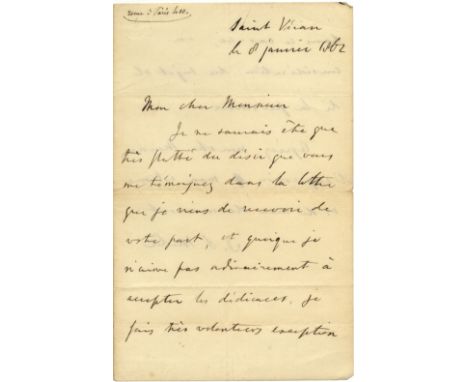 Saint Véran
le 8 janvier 1862
Mon cher Monsieur
Je ne saurais être que
très flatté du désir que vous
me témoignez dans la lettre
que je viens de recevoir de
votre part et quoique je
n'aime pas ordinairement à
accepter les dédicaces, je
fais très volontiers exception